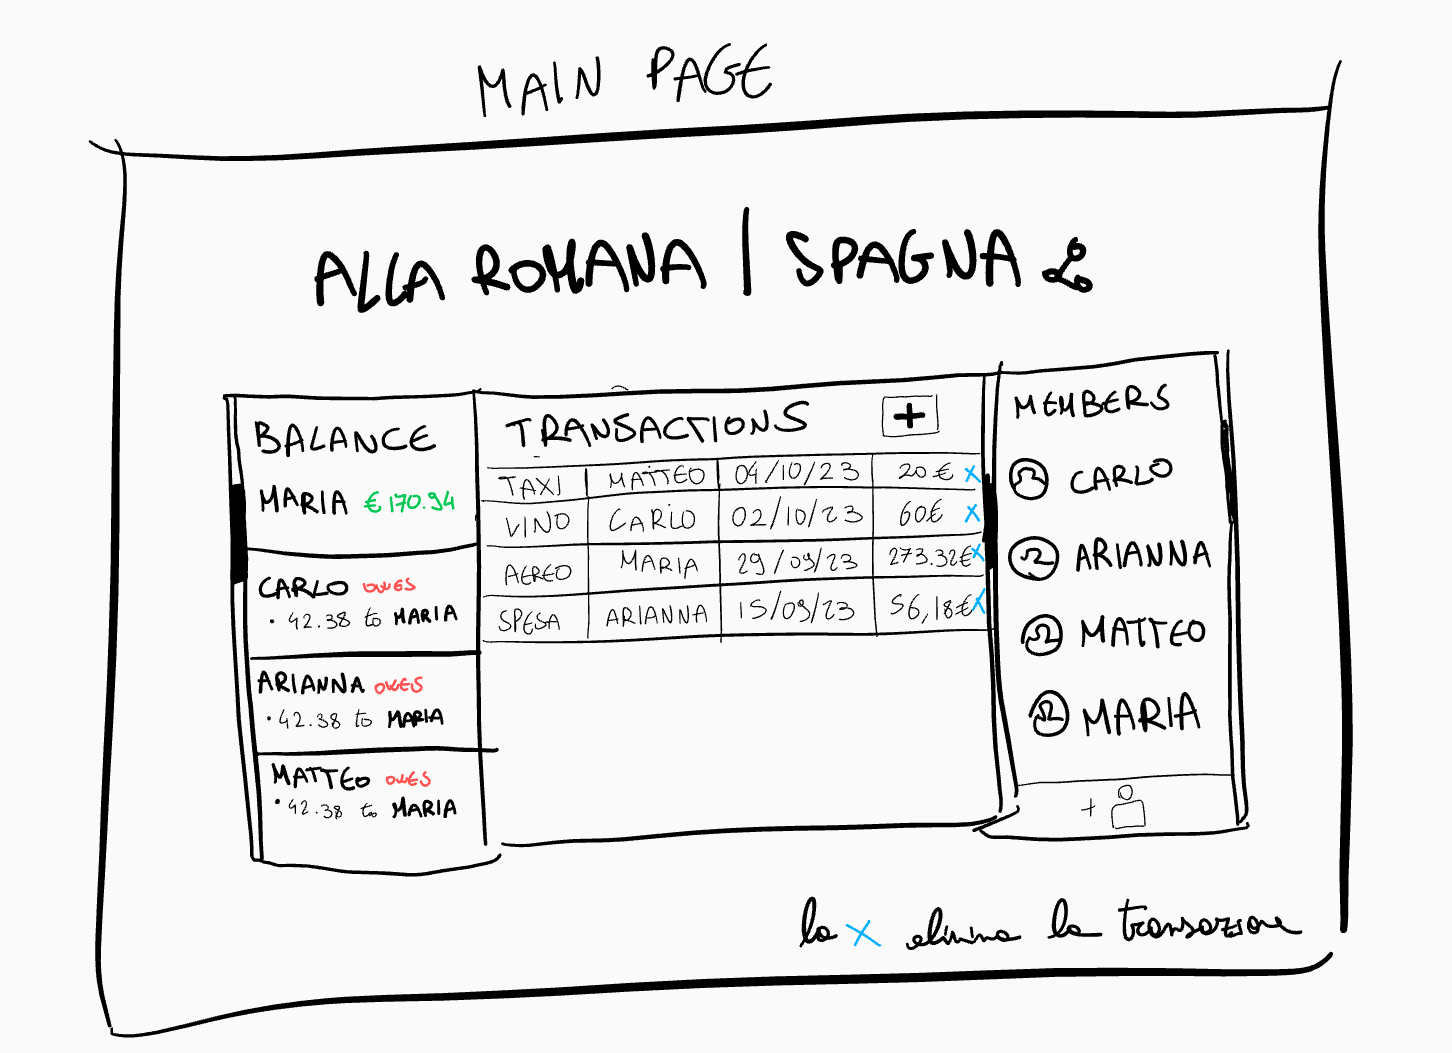 MAIN PAGE
ALLA ROMANA | SPAGNA
BALANCE
MARIA € 170.94
CARLO OWES
• 42.38 to MARIA
ARIANNA OWES
• 42.38 to MARIA
MATTEO OWES
• 42.38 to MARIA
TRANSACTIONS +
TAXI MATTEO 04/10/23 20€ X
VINO CARLO 02/10/23 60€ X
AEREO MARIA 29/09/23 273.32€ X
SPESA ARIANNA 15/09/23 56,18€ X
MEMBERS
CARLO
ARIANNA
MATTEO
MARIA
+
la X elimina la transazione